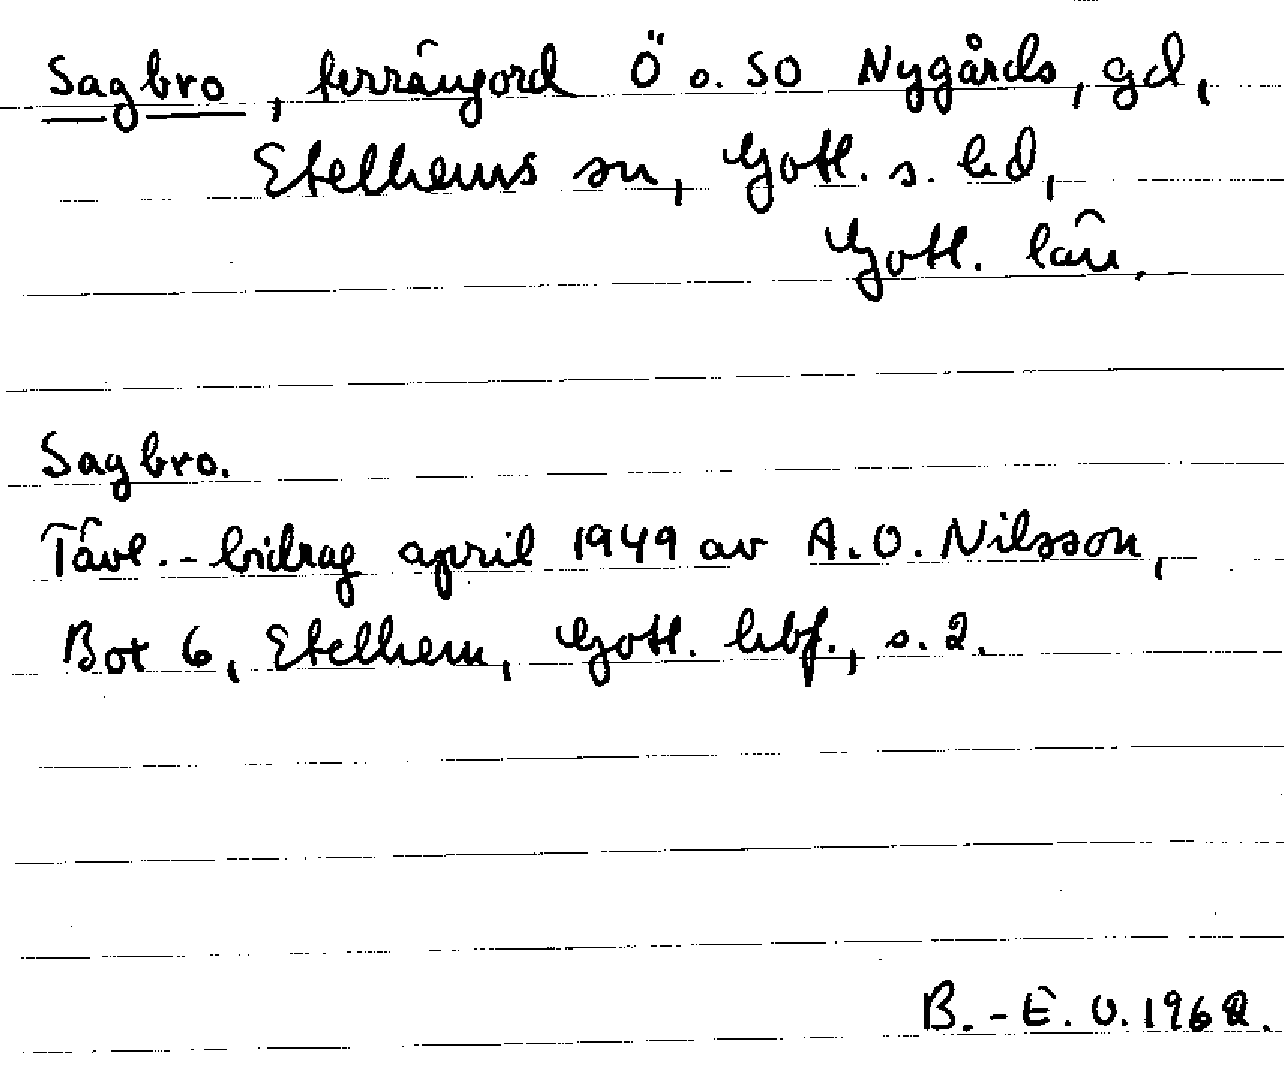 Sagbro, terrängord Ö o. SO Nygårds, gd,
Etelhems sn, Gotl. s. hd,
Gotl. län.
Sagbro.
Tävl.-bidrag april 1949 av A.O. Nilsson,
Bot 6, Etelhem, Gotl. hbf., s. 2.
B.-E. O. 1962.